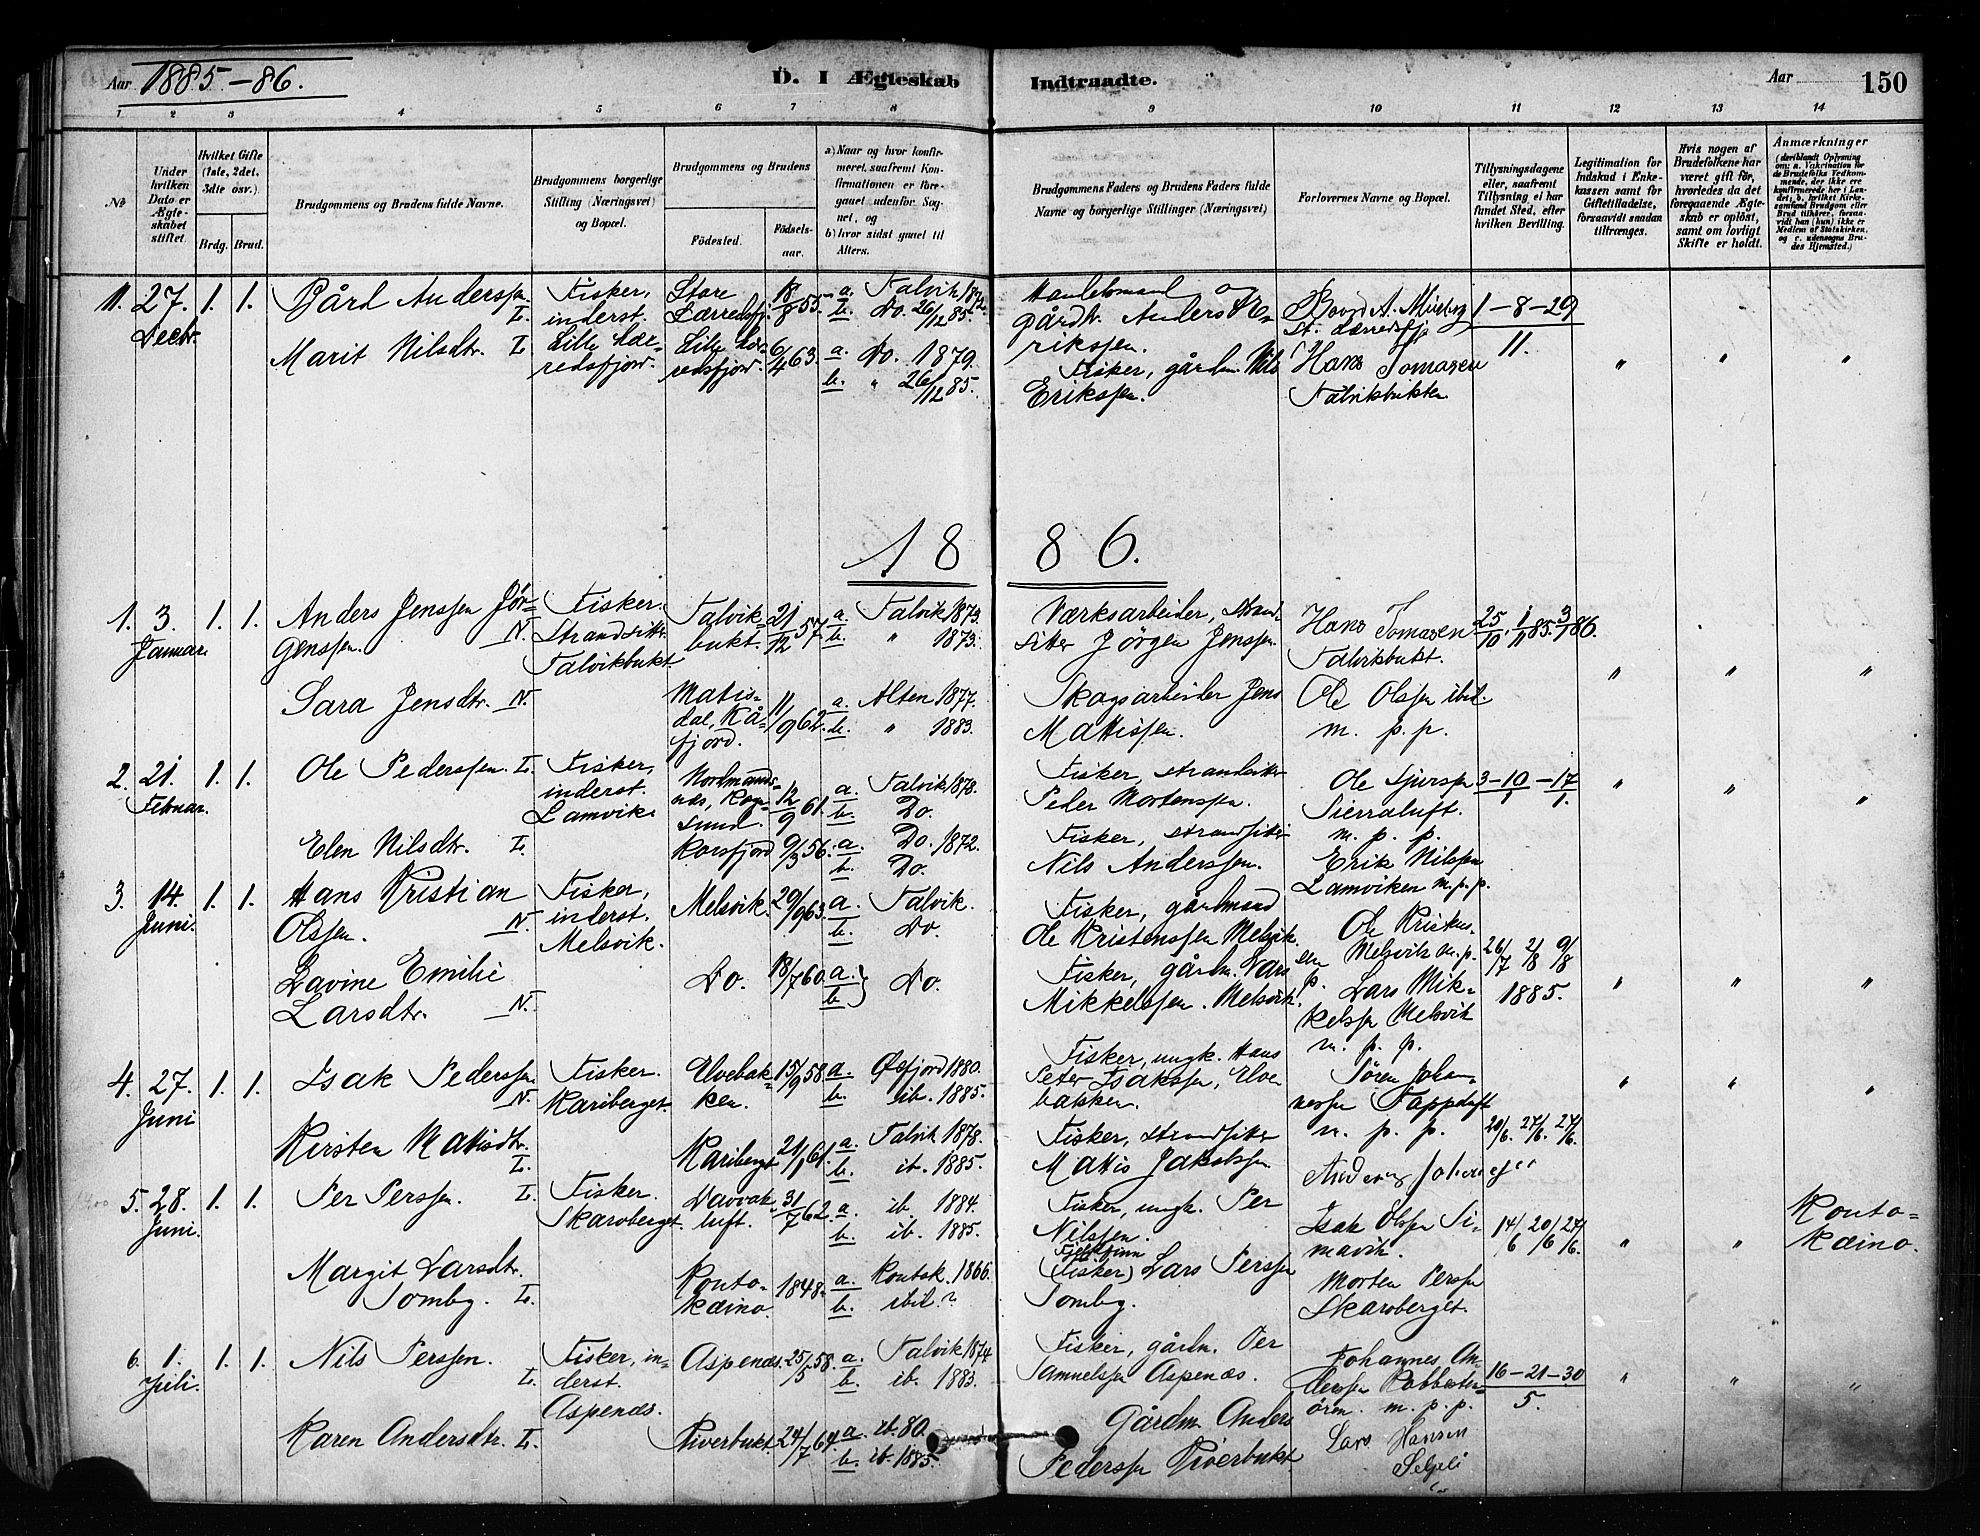 Aar 1885-86.
D. I Ægteskab Indtraadte.
Aar 150
1 2 3 4 5 6 7 8 9 10 11 12 13 14
No
Under hvilken Dato er Ægteskabet stiftet.
Hvilket Gifte (1ste, 2det, 3die osv.)
Brdg. Brud.
Brudgommens og Brudens fulde Navne.
Brudgommens borgerlige Stilling (Næringsvei) og Bopæl.
Brudgommens og Brudens
Fødested.
Fødsels-aar.
a) Naar og hvor konfirmeret, saafremt Konfirmationen er foregaaet udenfor Sognet, og
b) hvor sidst gaaet til Alters.
Brudgommens Faders og Brudens Faders fulde Navne og borgerlige Stillinger (Næringsvei)
Forlovernes Navne og Bopæl.
Tillysningsdagene eller, saafremt Tillysning ei har fundet Sted, efter hvilken Bevilling.
Legitimation for Indskud i Enkekassen samt for Giftetilladelse, forsaavidt saadan tiltrænges.
Hvis nogen af Brudefolkene har været gift før, hvorledes da det foregaaende Ægteskab er opløst, samt om lovligt Skifte er holdt.
Anmærkninger
11. 27. Decbr. 1. 1.
Bård Anderssen L.
Fisker, inderst. Lille Lerredsfjord.
Store Lærredsfj. 18/8 55
a. Talvik 1872.
b. Do. 26/12 85.
gårdbr. Anders Erikssen.
St. Lerredsfj
1-8-29
11.
Marit Nilsdtr. L.
Lille Lerredsfjord. 6/4 63.
a. Do. 1879.
b. " 26/12 85.
Fisker, gårdm. Nils Erikssen.
Hans Tomasen
Talvikbukten
" " "
1886.
1. 3. Januar. 1. 1.
Anders Jenssen Jörgenssen. N.
Fisker. Strandsitter. Talvikbukt
Talvikbukt. 21/12 57
a. Talvik 1873.
b. " 1873.
Værksarbeider, strandsitter Jörgen Jenssen
Hans Tomasen Talvikbukt.
25/10. 1/11 85. 3/1 86.
Sara Jensdtr. N.
Matisdal, Kåfjord. 11/9 62.
a. Alten 1877.
b. " 1883.
Skogsarbeider Jens Mattissen.
Ole Olssen ibid.
m. p. p.
" " "
2. 21. Februar. 1. 1.
Ole Pederssen. L.
Fisker, inderst. Lamvik.
Nordmandsnes, Kogsund. 12/9 61.
a. Talvik 1878.
b. Do.
Fisker, strandsitter Peder Mortenssen.
m. p. p.
3-10-17
1.
Elen Nilsdtr. L.
Korsfjord 9/3 56.
a. Do. 1872.
b. Do.
Fisker, strandsitter Nils Anderssen.
Erik Nilssen Lamviken m.p.p.
" " "
3. 14. Juni. 1. 1.
Hans Kristian Olssen. N.
Fisker, inderst. Melsvik.
Melsvik. 29/9 63.
a. Talvik.
b. Do.
Fisker, gårdmand Ole Kristenssen Melsvik.
Ole Kristenssen Melsvik m. p. p.
26/7 2/8 9/8
1885.
Lavine Emilie Larsdtr. N.
Do. 18/7 60.
a. b. } Do.
Fisker, gårdm. Lars Mikkelssen. Melsvik.
Lars Mikkelssen Melsvik
m. p. p.
" " "
4. 27. Juni 1. 1.
Isak Pederssen. N.
Fisker. Kariberget.
Elvebakken. 15/9 58.
a. Öxfjord 1880.
b. ib. 1885.
Fisker, ungk. Hans Peter Isakssen, Elvebakken.
Sören Johannessen Tappeluft
m. p. p.
20/6. 27/6. 27/6.
Kirsten Mattisdtr. L.
Kariberget 21/1 61.
a. Talvik 1878.
b. ib. 1885.
Fisker, strandsitter Mattis Jakobssen
" " "
5. 28. Juni. 1. 1.
Per Perssen. L.
Fisker. Skaroberget.
Davvakluft. 31/7 62.
a. ib. 1884.
b. ib. 1885.
Fisker, ungk. Per Nilssen.
Isak Olssen Simavik.
14/6 20/6 27/6.
Kontokæino.
Margit Larsdtr. Somby. L.
Kontokæino 1848.
a. Kontok. 1866.
b. ibid. ?
Fjeldfinn (Fisker) Lars Perssen Somby.
Morten Perssen Skaroberget.
" "
6. 1. Juli. 1. 1.
Nils Perssen. L.
Fisker, inderst. Aspenæs.
Aspenæs. 25/5 58.
a. Talvik 1874
b. ib. 1883.
Fisker, gårdm. Per Samuelssen Aspenæs.
Johannes Anderssen
m. p. p.
16-21-30
5.
Karen Andersdtr. L.
Riverbukt. 24/7 64.
a. ib. 80.
b. ib. 1885.
Gårdm. Anders Pederssen Riverbukt.
Lars Hansen
" " "